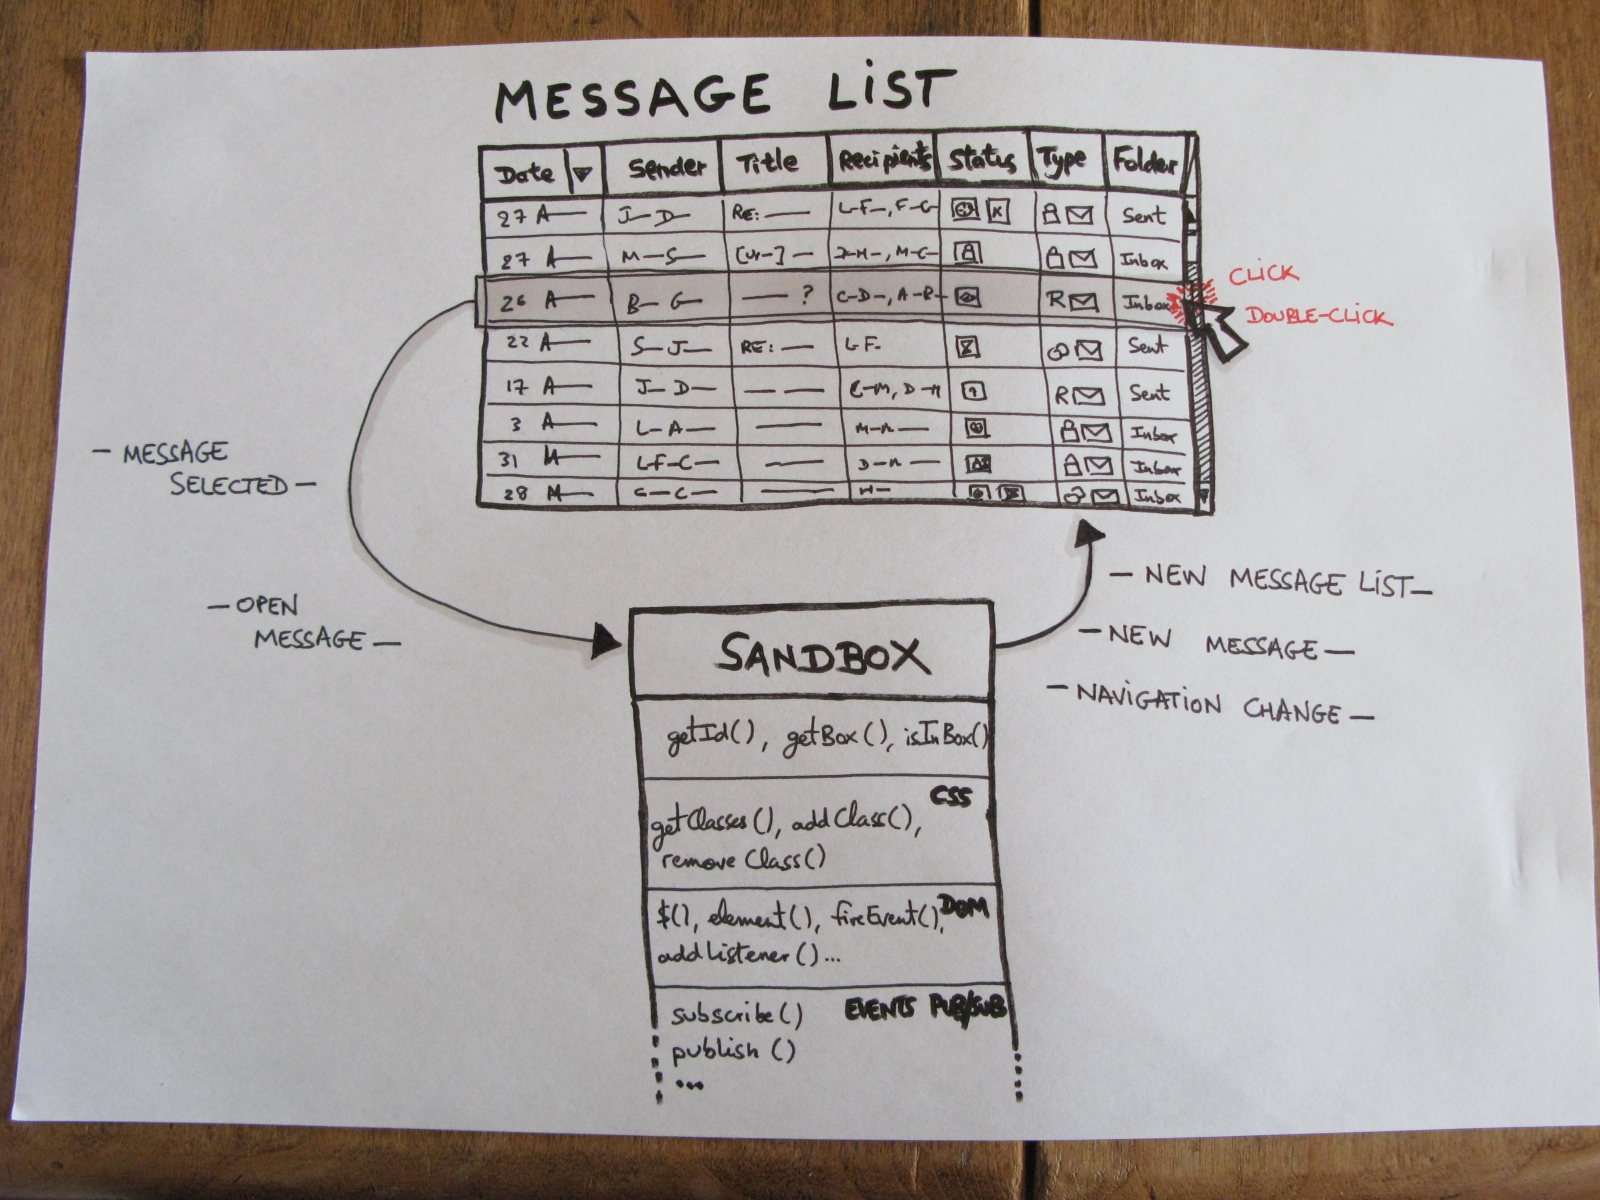 MESSAGE LIST
Date Sender Title Recipients Status Type Folder
27 A— J— D— RE: — L-F-, F-G Sent
27 A— M—S— — M-C- Inbox
26 A— B— G— —? C-D-, A-R- R Inbox
22 A— S—J— RE: — L-F- Sent
17 A— J— D— — — D-M R Sent
3 A— L—A— — M-M— Inbox
31 M— L-F-C— — D-M— Inbox
28 M— G—C— — H— Inbox
CLICK
DOUBLE-CLICK
— MESSAGE
SELECTED —
— OPEN
MESSAGE —
— NEW MESSAGE LIST —
— NEW MESSAGE —
— NAVIGATION CHANGE —
SANDBOX
getId(), getBox(), isInBox()
CSS
getClasses(), addClass(),
removeClass()
DOM
$(), element(), fireEvent(),
addListener()...
EVENTS PUB/SUB
subscribe()
publish()
...